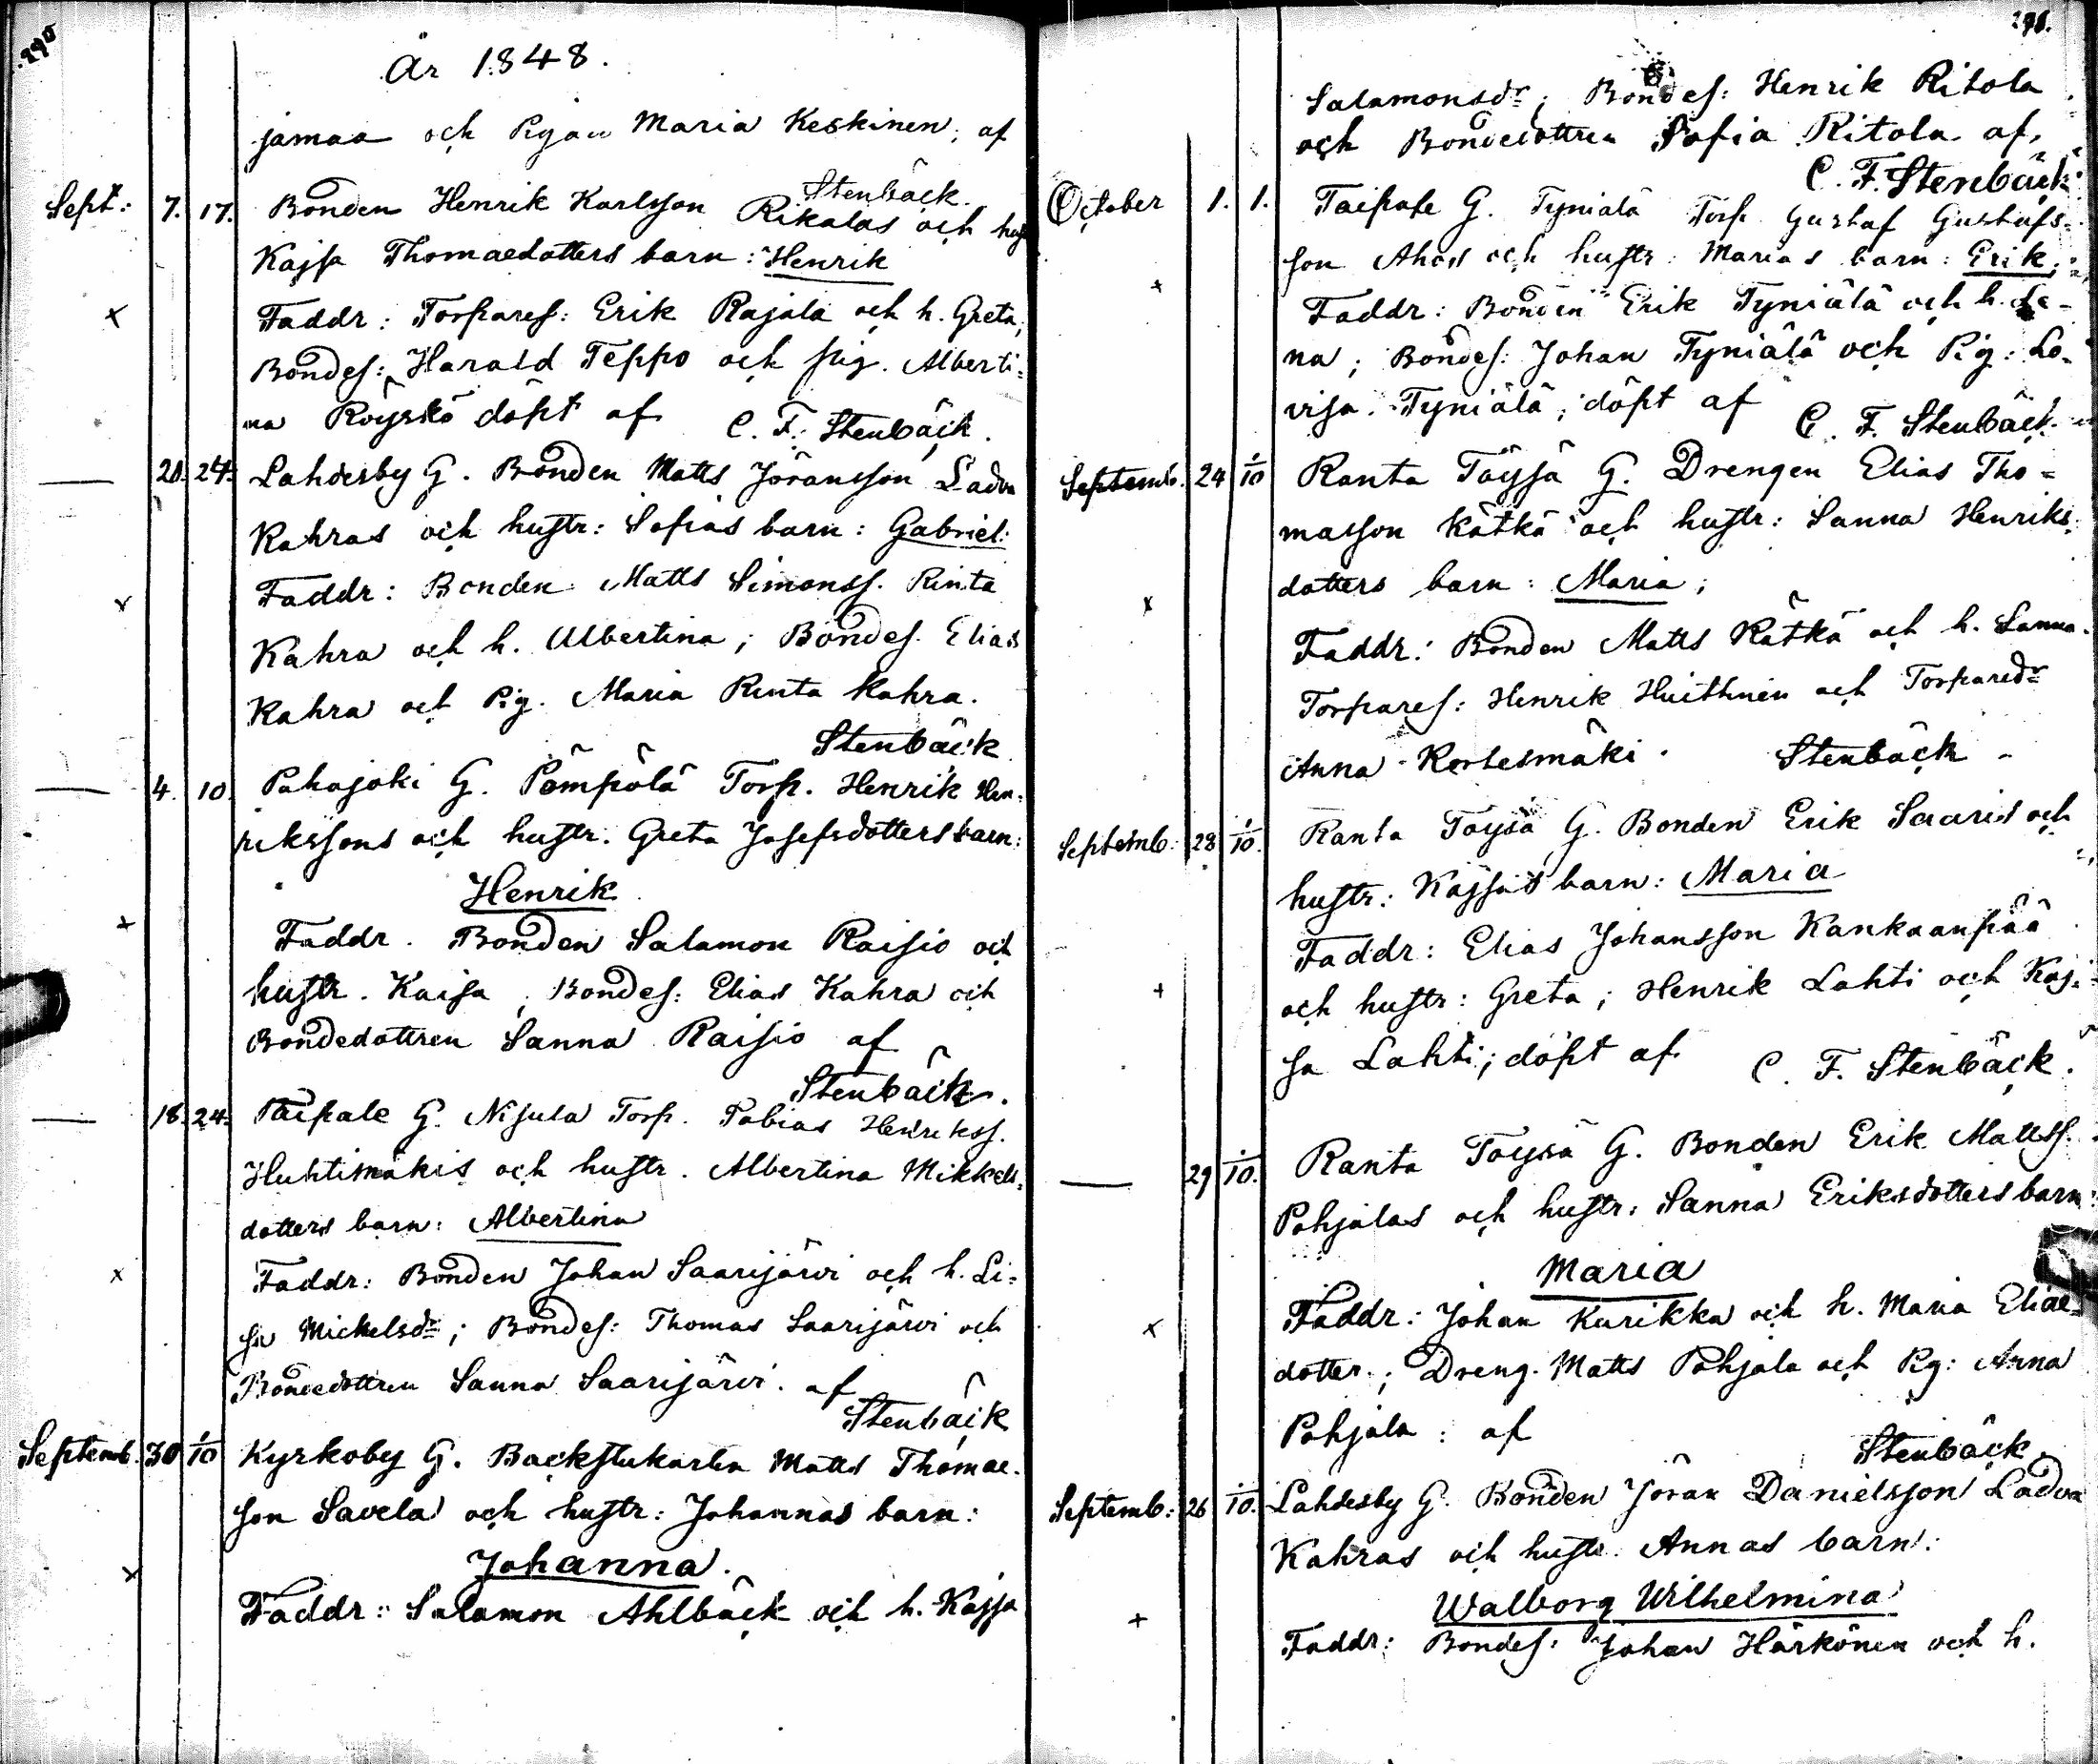 290
År 1848.
jamaa och Pigan Maria Keskinen, af
Stenbäck.
Sept: 7. 17. Bonden Henrik Karlsson Rikalas och hust
Kajsa Thomaedotters barn: Henrik
Faddr: Torpares: Erik Rajala och h. Greta,
Bondes: Harald Teppo och pig. Alberti=
na Röyskö döpt af C. F. Stenbäck.
— 20. 24. Lahdesby G. Bonden Matts Jöransson Ladva
Kahras och hustr: Sofias barn: Gabriel:
Faddr: Bonden Matts Simonss. Rinta
Kahra och h. Albertina; Bondes. Elias
Kahra och Pig. Maria Rinta Kahra.
Stenbäck
— 4. 10. Pahajoki G. Pömpölä Torp. Henrik Hen=
rikssons och hustr. Greta Josefsdotters barn:
Henrik
Faddr. Bonden Salamon Raisio och
hustr. Kaisa, Bondes: Elias Kahra och
Bondedottren Sanna Raisio af
Stenbäck.
— 18. 24. Taipale G. Njula Torp. Tobias Henrikss.
Huhtimäkis och hustr. Albertina Mikkels=
dotters barn: Albertina
Faddr: Bonden Johan Saarijärvi och h. Li=
sa Mickelsdr; Bondes: Thomas Saarijärvi och
Bondedottren Sanna Saarijärvi. af
Stenbäck
Septemb. 30 1/10 Kyrkoby G. Backstukarlen Matts Thomae.
son Savela och hustr: Johannas barn:
Johanna.
Faddr: Salamon Ahlbäck och h. Kajsa
291.
Salamonsdr; Bondes: Henrik Ritola
och Bondedottren Sofia Ritola af,
C. F. Stenbäck
October 1. 1. Taipale G. Tyniälä Torp Gustaf Gustafs=
son Ahos och hustr: Marias barn: Erik;
Faddr: Bonden Erik Tyniälä och h. Le=
na; Bondes: Johan Tyniälä och Pig: Lo=
visa Tyniälä; döpt af C. F. Stenbäck
Septemb. 24 1/10 Ranta Töysä G. Drengen Elias Tho=
masson Kätkä och hustr: Sanna Henriks=
dotters barn: Maria;
Faddr: Bonden Matts Kätkä och h. Sanna.
Torpares: Henrik Huithnen och Torparedr
Anna Kortesmäki. Stenbäck
Septemb: 28 1/10. Ranta Töysä G. Bonden Erik Saaris och
hustr: Kajsas barn: Maria
Faddr: Elias Johansson Kankaanpää
och hustr: Greta; Henrik Lahti och Kaj=
sa Lahti; döpt af C. F. Stenbäck.
— 29 1/10. Ranta Töysä G. Bonden Erik Mattss.
Pohjalas och hustr: Sanna Eriksdotters barn:
Maria
Faddr: Johan Kurikka och h. Maria Eliae=
dotter; Dreng. Matts Pohjala och Pig: Anna
Pohjala: af
Stenbäck
Septemb: 26 1/10. Lahdesby G. Bonden Jöran Danielsson Ladva
Kahras och hustr. Annas barn:
Walborg Wilhelmina
Faddr: Bondes: Johan Härkönen och h.